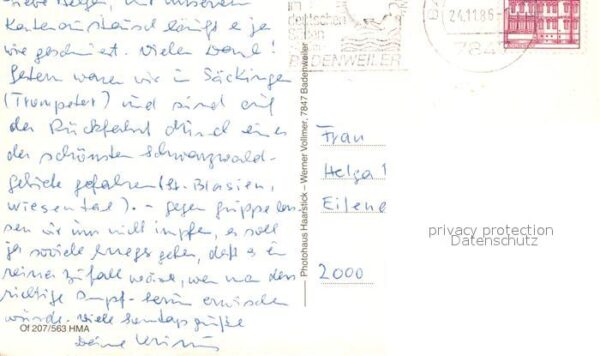 Liebe Helga, mit unserem
Kartenaustausch klappt es ja
wie geschmiert. Vielen Dank!
Gestern waren wir in Säckingen
(Trompeter) und sind auf
der Rückfahrt durch eines
der schönsten Schwarzwald-
gebiete gefahren (St. Blasien,
Wiesental). - gegen Grippe las-
sen wir uns nicht impfen, es soll
ja soviele geben, daß es ein
reiner Zufall wäre, wenn man das
richtige Impf-serum erwischen
würde. Viele Sonntagsgrüße
Deine
Of 207/563 HMA
Photohaus Haarstick – Werner Vollmer, 7847 Badenweiler
im
deutschen
BADENWEILER
24.11.86
784
Frau
Helga
Eilene
2000
privacy protection
Datenschutz